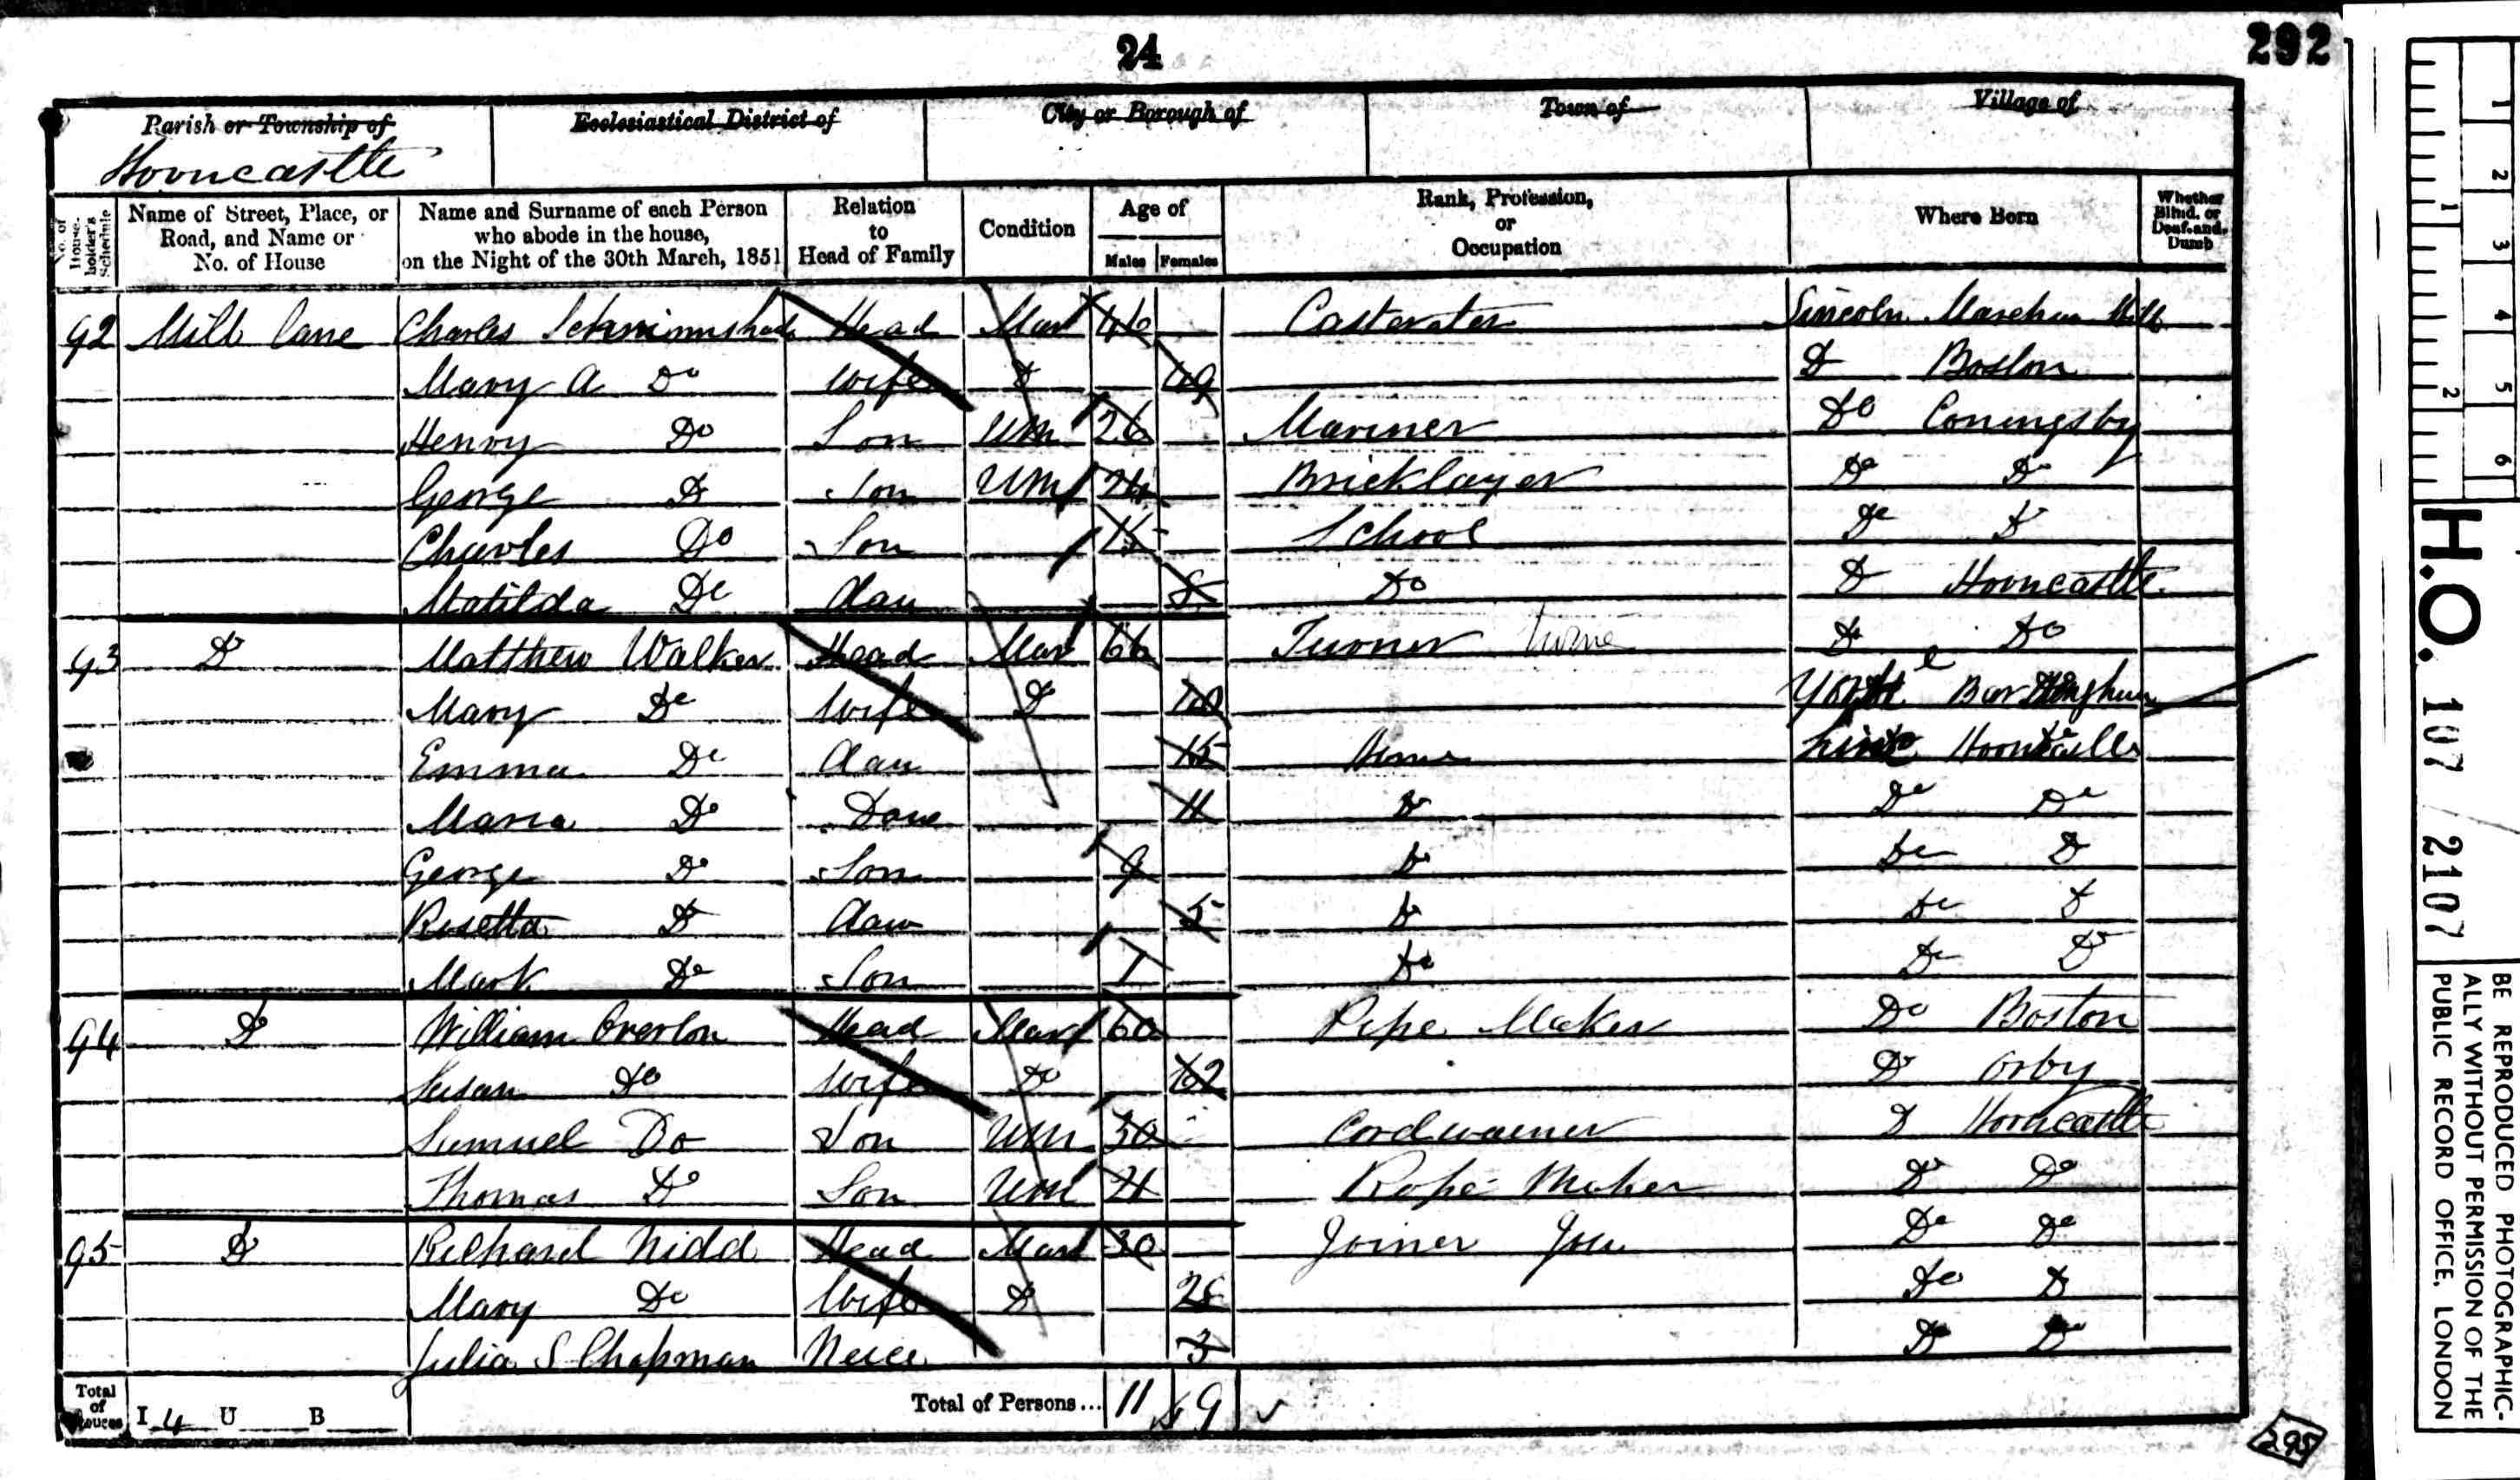 24
292
Parish or Township of
Horncastle
Ecclesiastical District of
City or Borough of
Town of
Village of
No. of House-holder's Schedule
Name of Street, Place, or Road, and Name or No. of House
Name and Surname of each Person who abode in the house, on the Night of the 30th March, 1851
Relation to Head of Family
Condition
Age of
Males
Females
Rank, Profession, or Occupation
Where Born
Whether Blind, or Deaf-and-Dumb
92 Mill Lane Charles Head Mar 46 Lincoln
Mary A Do Wife D 49 D Boston
Henry Do Son UM 26 Mariner Do Coningsby
George D Son UM 24 Bricklayer Do D
Charles Do Son 15 School Do D
Matilda Do dau 8 Do D Horncastle
93 D Matthew Walker Head Mar 66 Turner D Do
Mary Do Wife D York
Emma Do dau 15 Home Horncastle
Maria D Dau 11 D Do Do
George D Son 9 D Do D
Rosetta D daw 5 D Do D
Mark Do Son 1 Do Do D
94 D William Overton Head Mar 60 Pipe Maker Do Boston
Susan Do Wife Do 62 D Orby
Samuel Do Son UM 30 Cordwainer D Horncastle
Thomas D Son UM 21 Rope Maker D Do
95 D Richard Nidd Head Mar 30 Joiner Jou Do Do
Mary Do Wife D Do D
Julia S Chapman Neice 3 D D
Total of Houses I 4 U B
Total of Persons... 11 9
295
H.O. 107 / 2107
BE REPRODUCED PHOTOGRAPHIC-
ALLY WITHOUT PERMISSION OF THE
PUBLIC RECORD OFFICE, LONDON
1 2 3 4 5 6
1 2